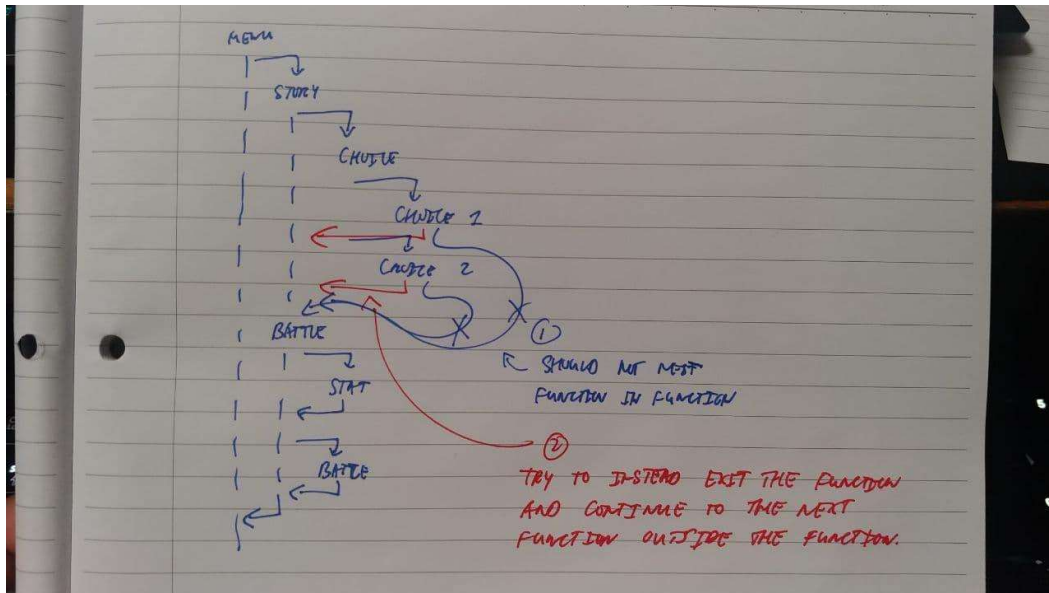 MENU
STORY
CHOICE
CHOICE 1
CHOICE 2
BATTLE
①
SHOULD NOT NEST
FUNCTION IN FUNCTION
STAT
BATTLE
②
TRY TO INSTEAD EXIT THE FUNCTION
AND CONTINUE TO THE NEXT
FUNCTION OUTSIDE THE FUNCTION.